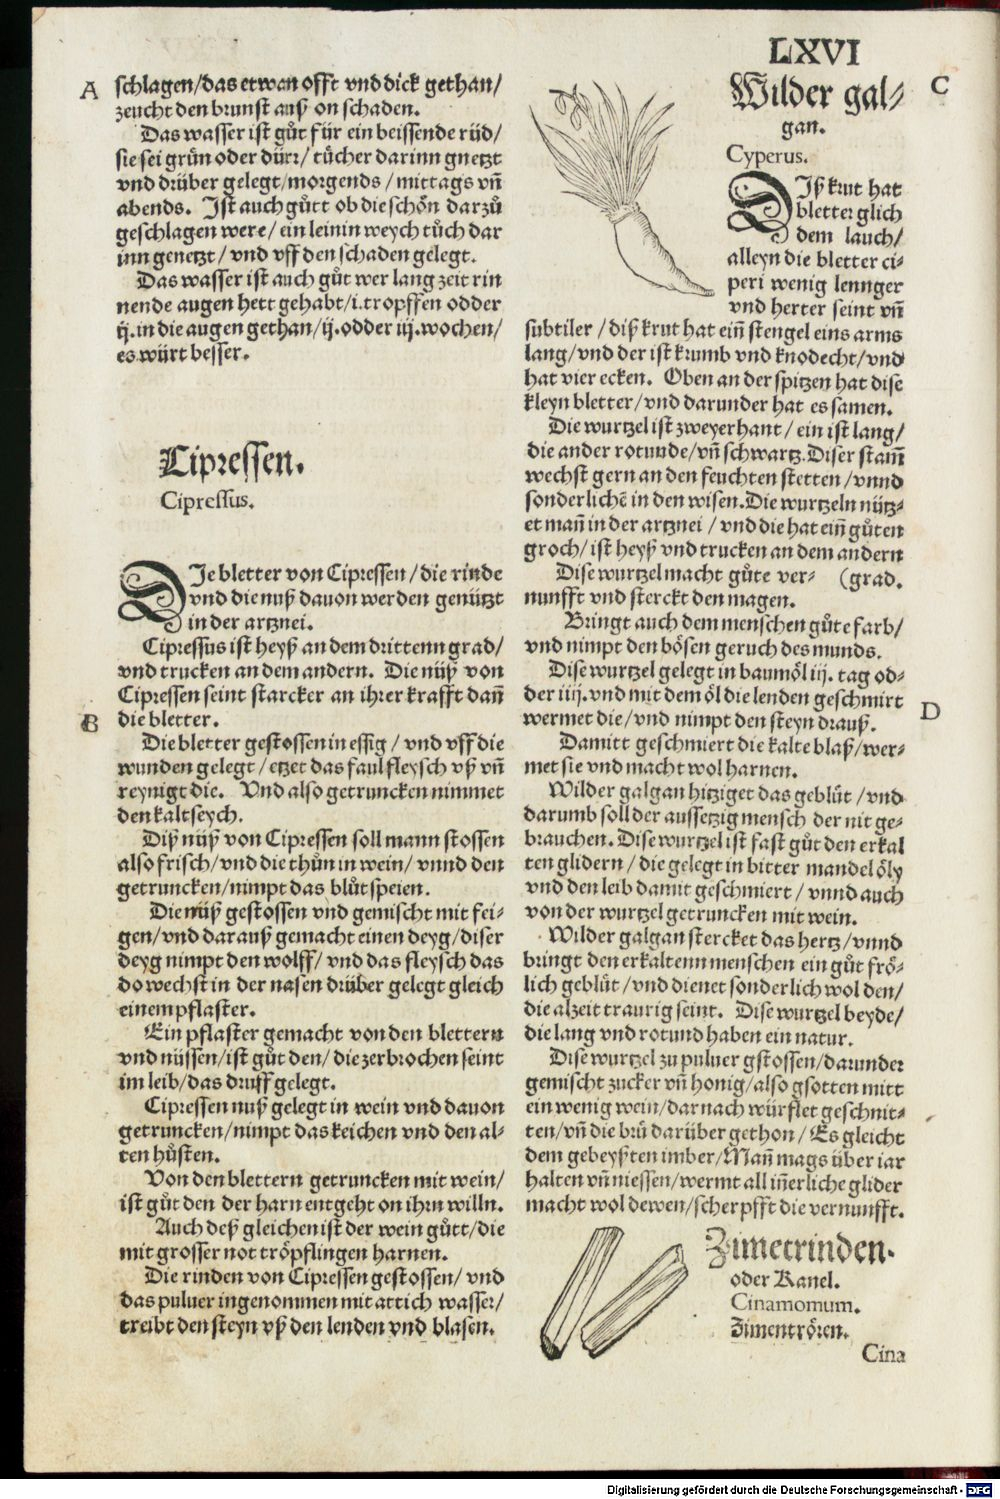 LXVI
A
schlagen/das etwan offt vnd dick gethan/
zeucht den brunst auß on schaden.
Das wasser ist gůt für ein beissende rüd/
sie sei grün oder dürr/ tücher darinn gnetzt
vnd drüber gelegt/morgends / mittags vñ
abends. Ist auch gůtt ob die schön darzů
geschlagen were/ ein leinin weych tůch dar
inn genetzt / vnd vff den schaden gelegt.
Das wasser ist auch gůt wer lang zeit rin
nende augen hett gehabt/i.tropffen odder
ij.in die augen gethan/ij.odder iij.wochen/
es würt besser.
Cipressen.
Cipressus.
DJe bletter von Cipressen / die rinde
vnd die nuß dauon werden genützt
in der artznei.
Cipressus ist heyß an dem drittenn grad/
vnd trucken an dem andern. Die nüß von
Cipressen seint starcker an ihrer krafft dañ
B
die bletter.
Die bletter gestossen in essig / vnd vff die
wunden gelegt / etzet das faul fleysch vß vñ
reynigt die. Vnd also getruncken nimmet
den kaltseych.
Diß nüß von Cipressen soll mann stossen
also frisch/vnd die thůn in wein/ vnnd den
getruncken/nimpt das blůt speien.
Die nüß gestossen vnd gemischt mit fei-
gen/vnd darauß gemacht einen deyg/diser
deyg nimpt den wolff/ vnd das fleysch das
do wechst in der nasen drüber gelegt gleich
einem pflaster.
Ein pflaster gemacht von den blettern
vnd nüssen/ist gůt den/die zerbrochen seint
im leib/das druff gelegt.
Cipressen nuß gelegt in wein vnd dauon
getruncken/nimpt das keichen vnd den al-
ten hůsten.
Von den blettern getruncken mit wein/
ist gůt den der harn entgeht on ihrn willn.
Auch deß gleichen ist der wein gůtt/die
mit grosser not tröpflingen harnen.
Die rinden von Cipressen gestossen/ vnd
das puluer ingenommen mit attich wasser/
treibt den steyn vß den lenden vnd blasen.
C
Wilder gal-
gan.
Cyperus.
DJß krut hat
bletter glich
dem lauch/
alleyn die bletter ci-
peri wenig lennger
vnd herter seint vñ
subtiler / diß krut hat eiñ stengel eins arms
lang/vnd der ist krumb vnd knodecht/vnd
hat vier ecken. Oben an der spitzen hat dise
kleyn bletter/vnd darunder hat es samen.
Die wurtzel ist zweyerhant/ ein ist lang/
die ander rotunde/vñ schwartz.Diser stam̃
wechst gern an den feuchten stetten/vnnd
sonderlichẽ in den wisen.Die wurtzeln nütz-
et mañ in der artznei / vnd die hat eiñ gůten
groch/ist heyß vnd trucken an dem andern
Dise wurtzel macht gůte ver- (grad.
nunfft vnd sterckt den magen.
Bringt auch dem menschen gůte farb/
vnd nimpt den bösen geruch des munds.
Dise wurtzel gelegt in baumöl iij. tag od-
der iiij.vnd mit dem öl die lenden geschmirt
D
wermet die/vnd nimpt den steyn drauß.
Damitt geschmiert die kalte blaß/wer-
met sie vnd macht wol harnen.
Wilder galgan hitziget das geblüt /vnd
darumb soll der aussetzig mensch der nit ge-
brauchen. Dise wurtzel ist fast gůt den erkal
ten glidern / die gelegt in bitter mandel öly
vnd den leib damit geschmiert / vnnd auch
von der wurtzel getruncken mit wein.
Wilder galgan stercket das hertz/vnnd
bringt den erkaltenn menschen ein gůt frö-
lich geblüt/vnd dienet sonderlich wol den/
die alzeit traurig seint. Dise wurtzel beyde/
die lang vnd rotund haben ein natur.
Dise wurtzel zu puluer gstossen/darunder
gemischt zucker vñ honig/also gsotten mitt
ein wenig wein/darnach würflet geschnit-
ten/vñ die brü darüber gethon/Es gleicht
dem gebeyßten imber/Mañ mags über iar
halten vñ niessen/wermt all iñerliche glider
macht wol dewen/scherpfft die vernunfft.
Zimetrinden.
oder Kanel.
Cinamomum.
Zimentrören.
Cina
Digitalisierung gefördert durch die Deutsche Forschungsgemeinschaft - DFG